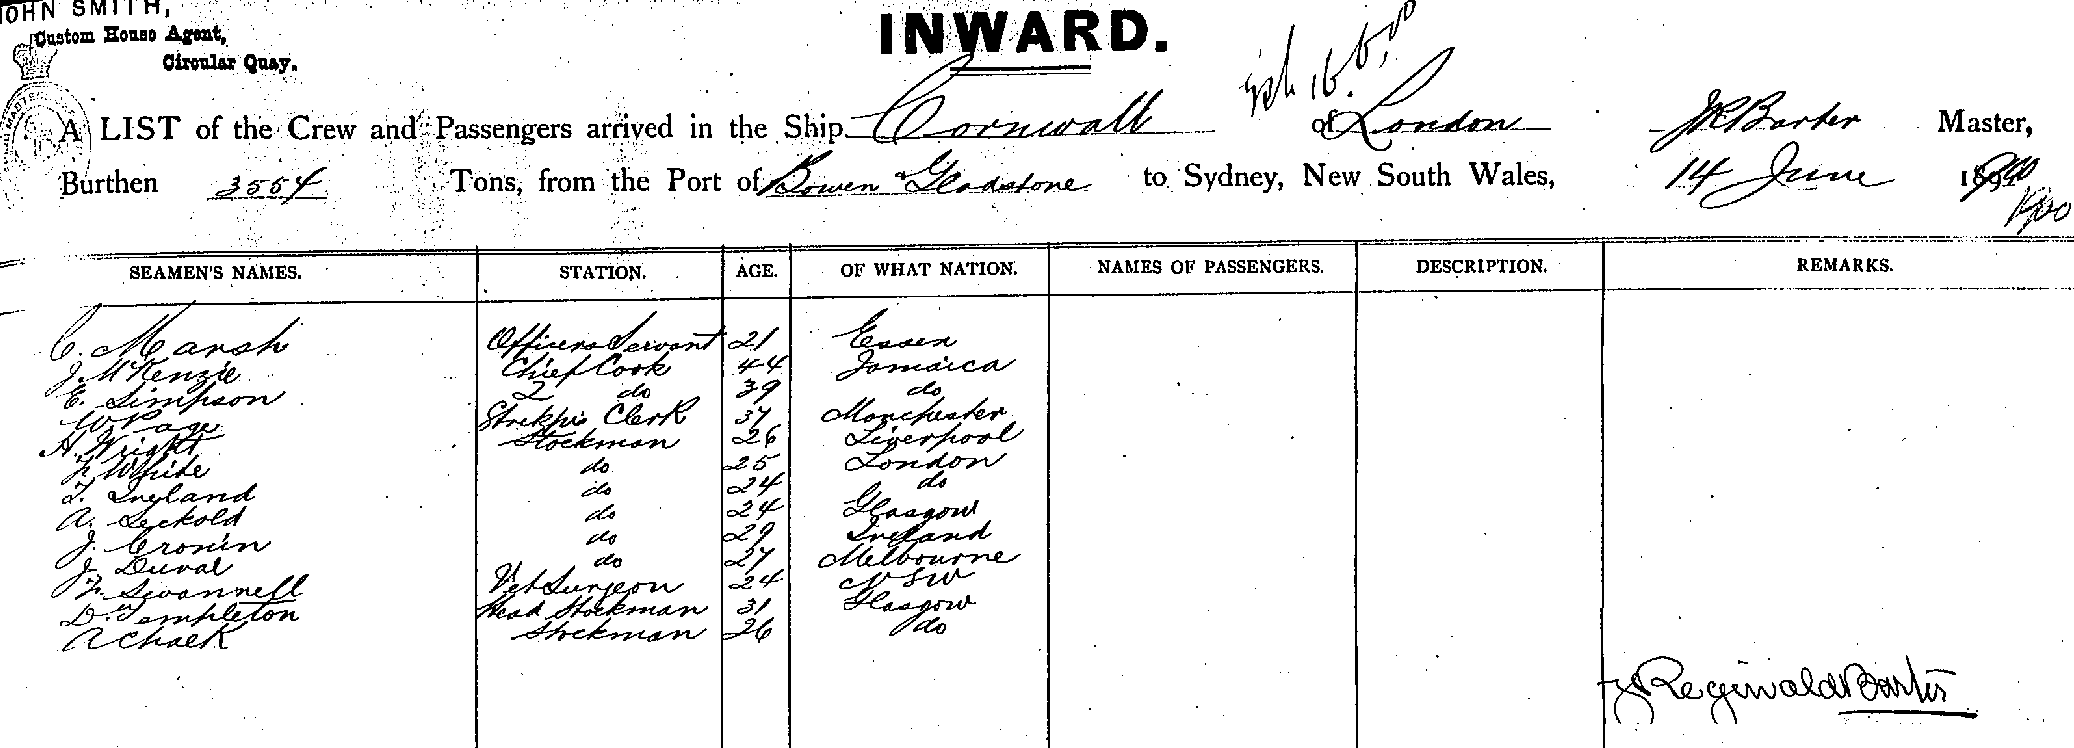 JOHN SMITH,
Custom House Agent,
Circular Quay.
INWARD.
A LIST of the Crew and Passengers arrived in the Ship Cornwall of London J R Barter Master,
Burthen 3554 Tons, from the Port of Bowen & Gladstone to Sydney, New South Wales, 14 June 1900
1900
SEAMEN'S NAMES. STATION. AGE. OF WHAT NATION. NAMES OF PASSENGERS. DESCRIPTION. REMARKS.
C. Marsh Officers Servant 21 Essex
J. McKenzie Chief Cook 44 Jamaica
E. Simpson 2 do 39 do
W Page Clerk 37 Manchester
A. Wright Stockman 26 Liverpool
F. White do 25 London
T. Ireland do 24 do
A. Leckold do 24 Glasgow
J. Cronin do 29 Ireland
J. Duval do 27 Melbourne
F. Swannell Vet Surgeon 24 N S W
D. Templeton Head Stockman 31 Glasgow
A Chalk Stockman 26 do
J Reginald Barter